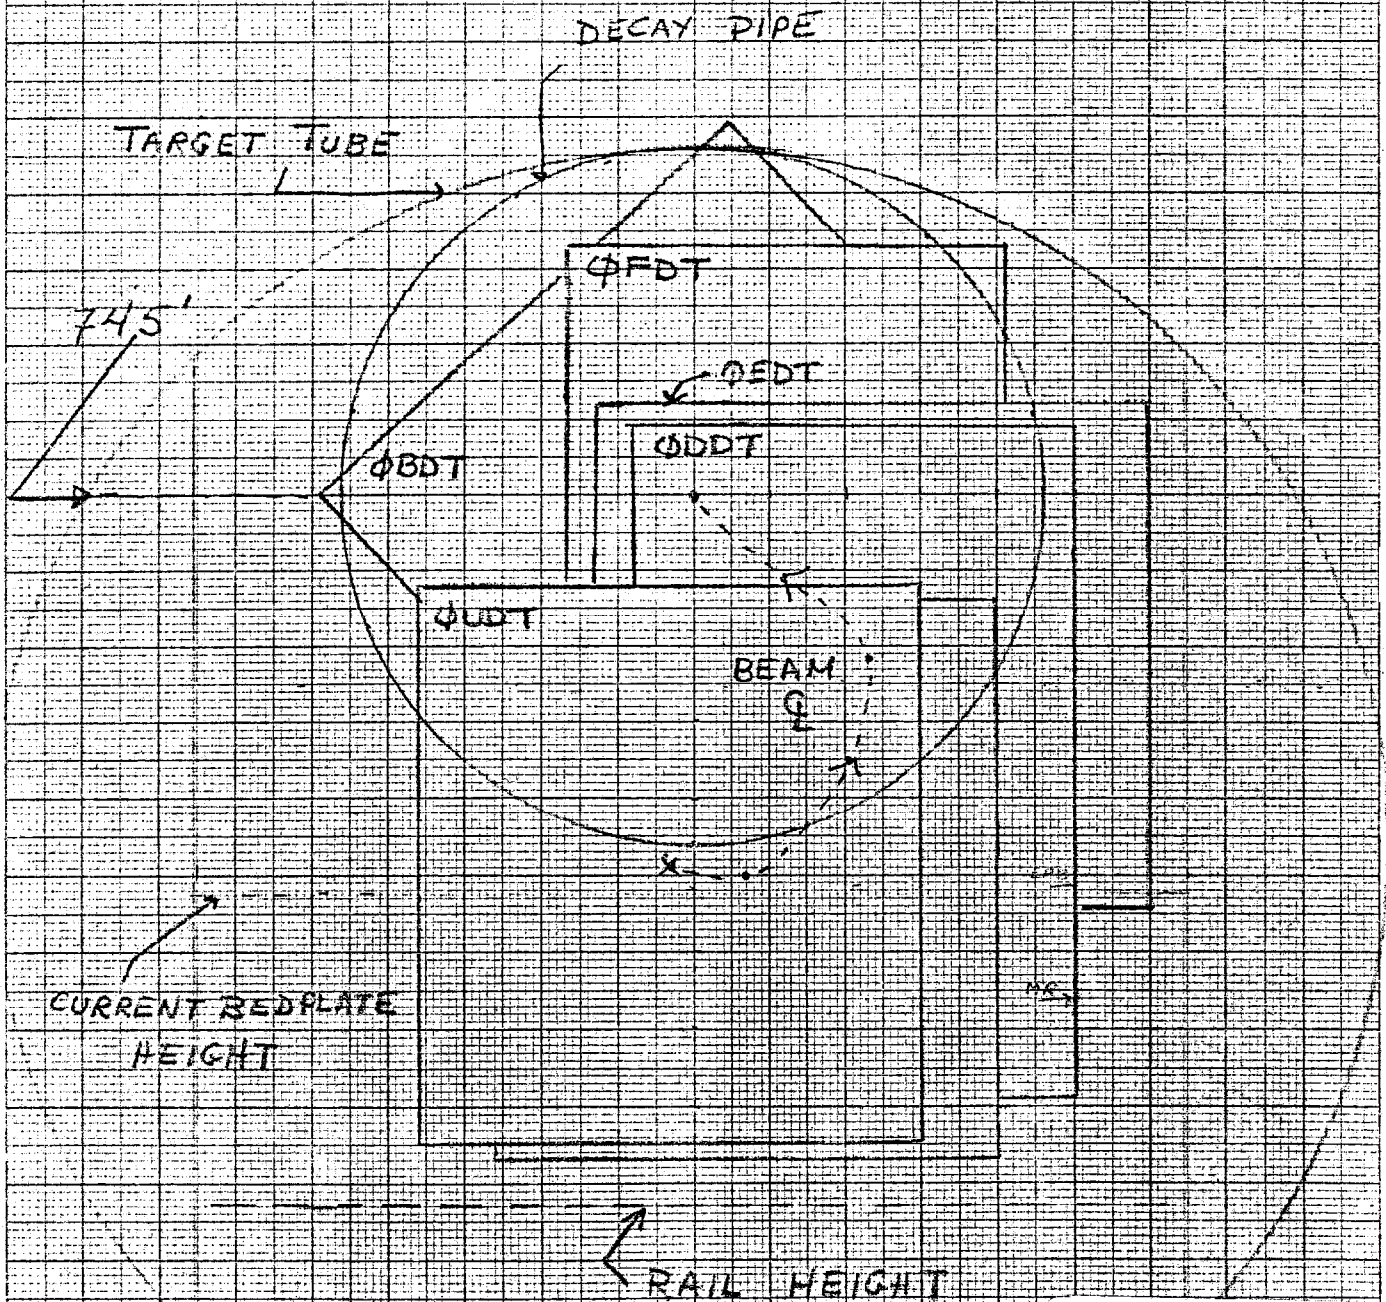 DECAY PIPE
TARGET TUBE
ΦFDT
745'
ΦEDT
ΦDDT
ΦBDT
ΦUDT
BEAM
℄
MR
CURRENT BEDPLATE
HEIGHT
RAIL HEIGHT